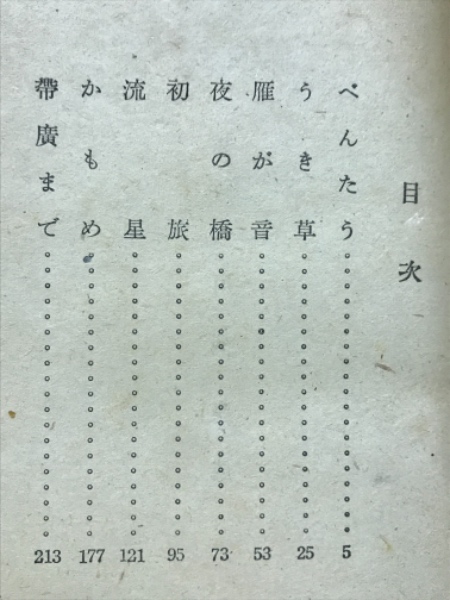 目次
べんたう 5
うき草 25
雁が音 53
夜の橋 73
初旅 95
流星 121
かもめ 177
帶廣まで 213